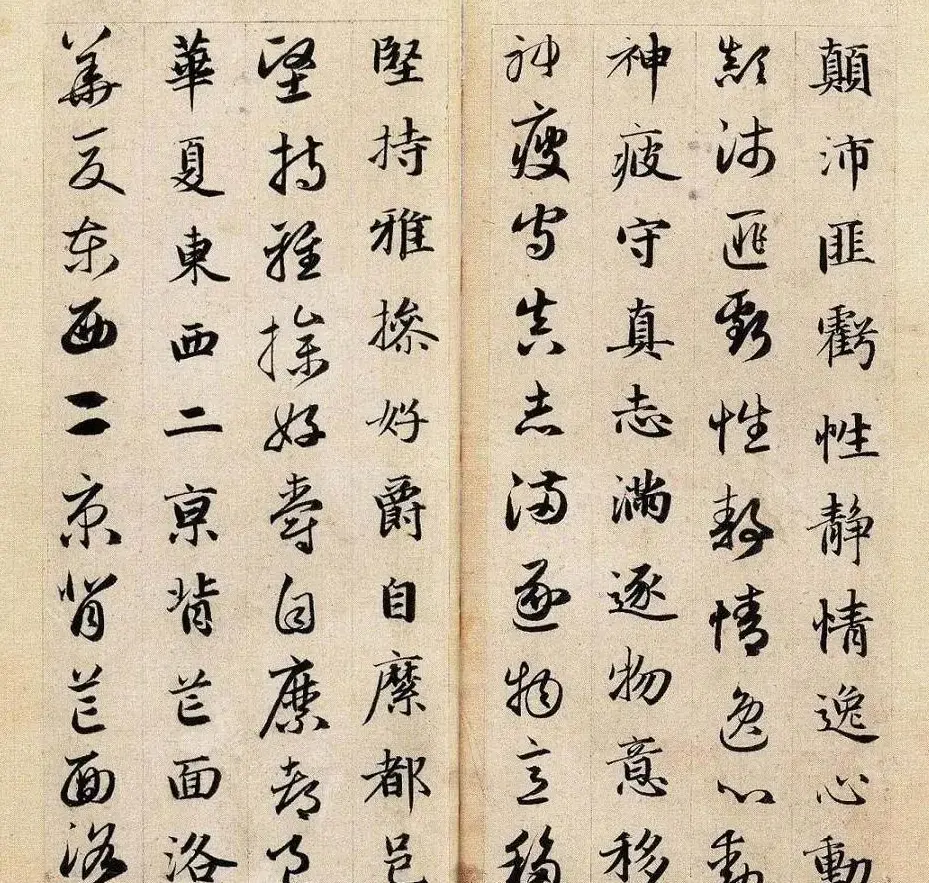 顛沛匪虧性靜情逸心動
顛沛匪虧性靜情逸心動
神疲守真志滿逐物意移
神疲守真志滿逐物意移
堅持雅操好爵自縻都邑
堅持雅操好爵自縻都邑
華夏東西二京背芒面洛
華夏東西二京背芒面洛